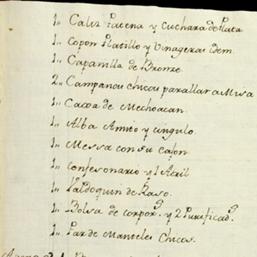 1,, Caliz Patena y Cuchara de Plata
1,, Copon Platillo y Vinageras Idem
1,, Capanilla de Bronze
2,, Campanas chicas para llar a Misa
1,, Caxa de Mechoacan
1,, Alba Amito y cingulo
1,, Messa con su cajon
1,, Confesonario y 1 Atril
1,, Valdoquin de Raso.
1,, Bolsa de Corpors. y 2 Purificads.
1,, Par de Manteles Chicos.